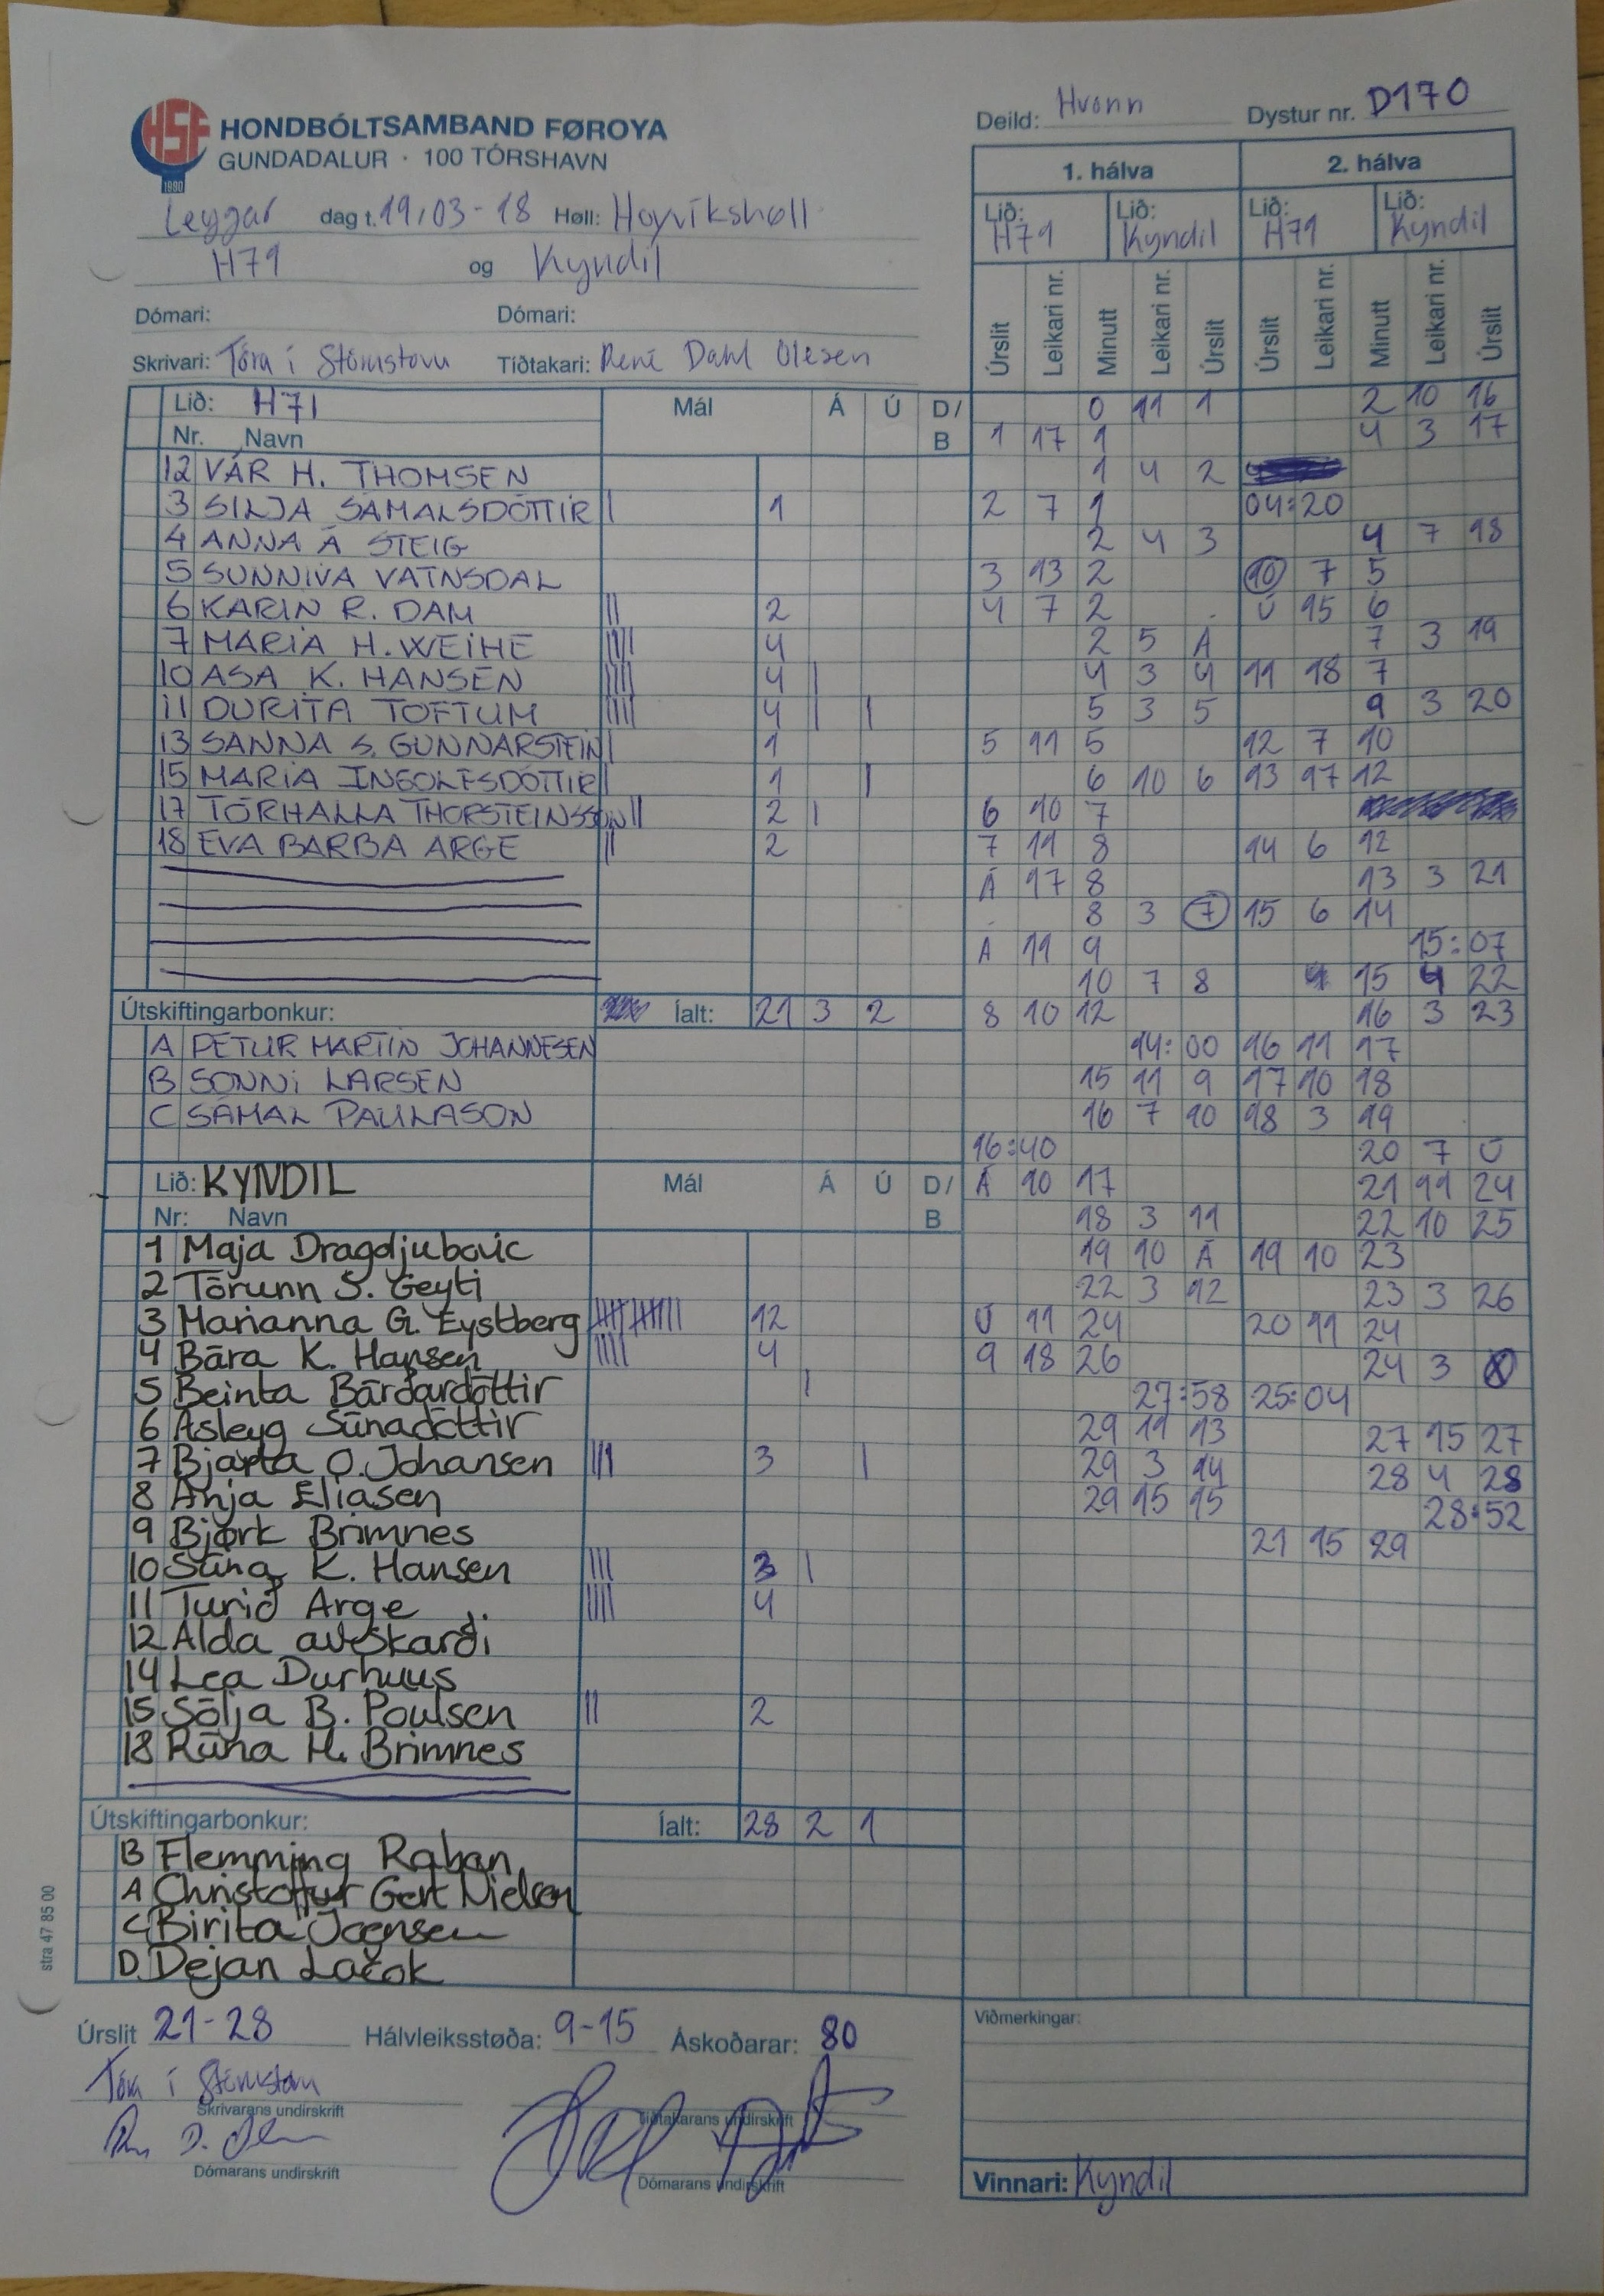 HSF
1980
HONDBÓLTSAMBAND FØROYA
GUNDADALUR · 100 TÓRSHAVN
Deild: Hvonn Dystur nr. D170
Leygar dag t. 19/03-18 Høll: Hoyvíkshøll
H71 og Kyndil
Dómari: Dómari:
Skrivari: Tóra í Stórustovu Tíðtakari: René Dahl Olesen
1. hálva 2. hálva
Lið: H71 Lið: Kyndil Lið: H71 Lið: Kyndil
Úrslit Leikari nr. Minutt Leikari nr. Úrslit Úrslit Leikari nr. Minutt Leikari nr. Úrslit
Lið: H71 Mál Á Ú D/B
Nr. Navn
12 VÁR H. THOMSEN
3 SILJA SÁMALSDÓTTIR | 1
4 ANNA Á STEIG
5 SUNNIVA VATNSDAL
6 KARIN R. DAM || 2
7 MARIA H. WEIHE |||| 4
10 ASA K. HANSEN |||| 4 |
11 DURITA TOFTUM |||| 4 | |
13 SANNA S. GUNNARSTEIN | 1
15 MARIA INGOLFSDÓTTIR | 1 |
17 TÓRHALLA THORSTEINSSON || 2 |
18 EVA BARBA ARGE || 2
Útskiftingarbonkur: Íalt: 21 3 2
A PETUR MARTIN JOHANNESEN
B SONNI LARSEN
C SÁMAL PAULASON
Lið: KYNDIL Mál Á Ú D/B
Nr: Navn
1 Maja Dragoljubovic
2 Tórunn S. Geyti
3 Marianna G. Eystberg 12
4 Bára K. Hansen |||| 4
5 Beinta Bárdardóttir |
6 Asleyg Súnadóttir
7 Bjarta O. Johansen ||| 3 |
8 Anja Eliasen
9 Bjørk Brimnes
10 Súna K. Hansen ||| 3 |
11 Turið Arge |||| 4
12 Alda av Skarði
14 Lea Durhuus
15 Sólja B. Poulsen || 2
18 Rúna H. Brimnes
Útskiftingarbonkur: Íalt: 28 2 1
B Flemming Raban
A Christoffur Gert Nielsen
C Birita Joensen
D. Dejan Lačok
0 11 1 2 10 16
1 17 1 4 3 17
1 4 2
2 7 1 04:20
2 4 3 4 7 18
3 13 2 10 7 5
4 7 2 Ú 15 6
2 5 Á 7 3 19
4 3 4 11 18 7
5 3 5 9 3 20
5 11 5 12 7 10
6 10 6 13 17 12
6 10 7
7 11 8 14 6 12
Á 17 8 13 3 21
8 3 7 15 6 14
Á 11 9 15:07
10 7 8 15 4 22
8 10 12 16 3 23
14:00 16 11 17
15 11 9 17 10 18
16 7 10 18 3 19
16:40 20 7 Ú
Á 10 17 21 11 24
18 3 11 22 10 25
19 10 Á 19 10 23
22 3 12 23 3 26
Ú 11 24 20 11 24
9 18 26 24 3
27:58 25:04
29 11 13 27 15 27
29 3 14 28 4 28
29 15 15 28:52
21 15 29
Úrslit 21-28 Hálvleiksstøða: 9-15 Áskoðarar: 80
Tóra í Stórustovu
Skrivarans undirskrift Tíðtakarans undirskrift
Dómarans undirskrift Dómarans undirskrift
Viðmerkingar:
Vinnari: Kyndil
stra 47 85 00